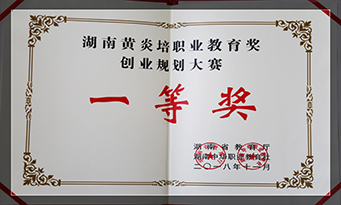 湖南黄炎培职业教育奖
创业规划大赛
一等奖
湖南省教育厅
湖南中华职业教育社
二〇一八年十一月